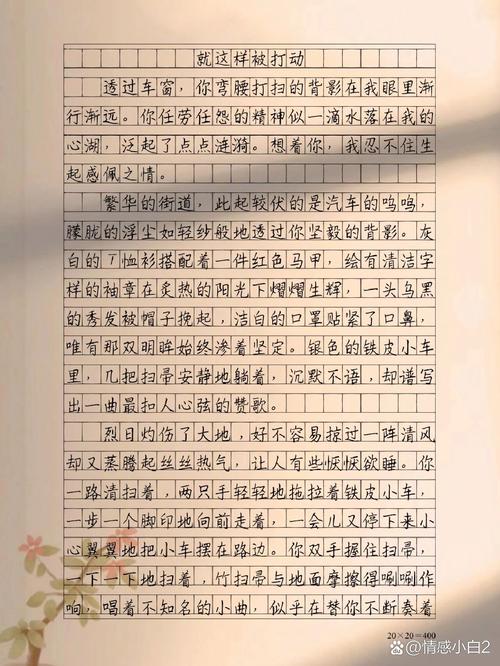 就这样被打动
透过车窗，你弯腰打扫的背影在我眼里渐
行渐远。你任劳任怨的精神似一滴水落在我的
心湖，泛起了点点涟漪。想着你，我忍不住生
起感佩之情。
繁华的街道，此起较伏的是汽车的呜呜，
朦胧的浮尘如轻纱般地透过你坚毅的背影。灰
白的T恤衫搭配着一件红色马甲，绘有清洁字
样的袖章在炙热的阳光下熠熠生辉，一头乌黑
的秀发被帽子挽起，洁白的口罩贴紧了口鼻，
唯有那双明眸始终渗着坚定。银色的铁皮小车
里，几把扫帚安静地躺着，沉默不语，却谱写
出一曲最扣人心弦的赞歌。
烈日灼伤了大地，好不容易掠过一阵清风
却又蒸腾起丝丝热气，让人有些恹恹欲睡。你
一路清扫着，两只手轻轻地拖拉着铁皮小车，
一步一个脚印地向前走着，一会儿又停下来小
心翼翼地把小车摆在路边。你双手握住扫帚，
一下一下地扫着，竹扫帚与地面摩擦得唰唰作
响，唱着不知名的小曲，似乎在替你不断奏着
20×20=400
情感小白2